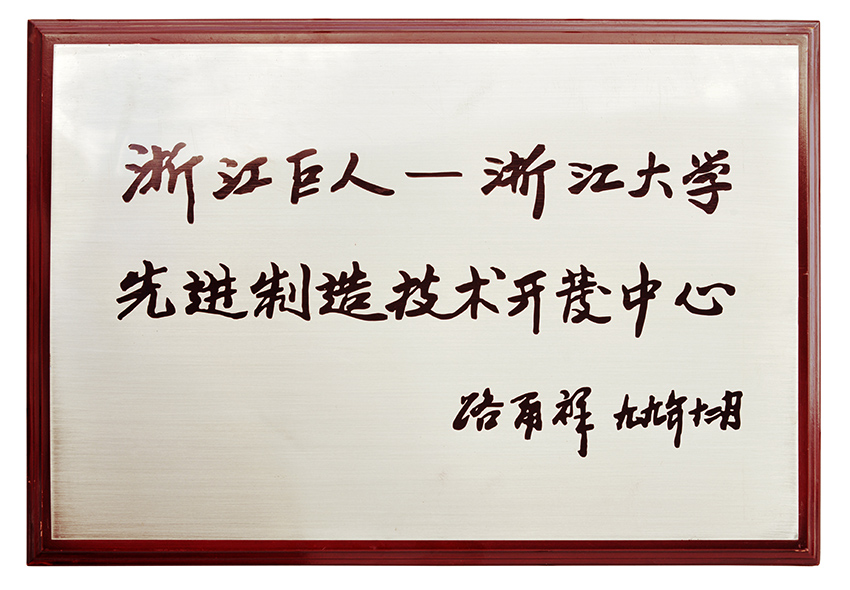 浙江巨人一浙江大学
先进制造技术开发中心
路甬祥 九九年十二月